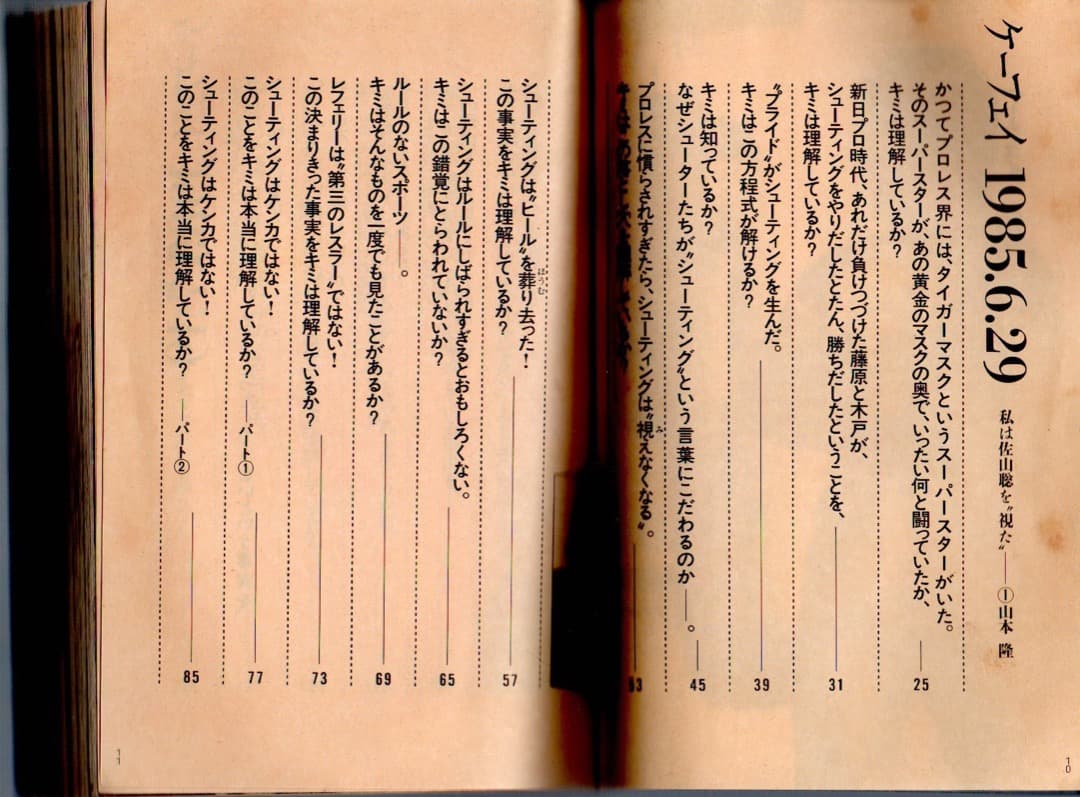 ケーフェイ 1985.6.29 私は佐山聡を〝視た〟――①山本 隆
かつてプロレス界には、タイガーマスクというスーパースターがいた。
そのスーパースターが、あの黄金のマスクの奥で、いったい何と闘っていたか、
キミは理解しているか?
25
新日プロ時代、あれだけ負けつづけた藤原と木戸が、
シューティングをやりだしたとたん、勝ちだしたということを、
キミは理解しているか?
31
〝プライド〟がシューティングを生んだ。
キミはこの方程式が解けるか?
39
キミは知っているか?
なぜシューターたちが〝シューティング〟という言葉にこだわるのか――。
45
プロレスに慣らされすぎたら、シューティングは〝視えなくなる〟。
み
シューティングは〝ヒール〟を葬り去った!
ほうむ
この事実をキミは理解しているか?
57
シューティングはルールにしばられすぎるとおもしろくない。
キミはこの錯覚にとらわれていないか?
65
ルールのないスポーツ――。
キミはそんなものを一度でも見たことがあるか?
69
レフェリーは〝第三のレスラー〟ではない!
この決まりきった事実をキミは理解しているか?
73
シューティングはケンカではない!
このことをキミは本当に理解しているか? ――パート①
77
シューティングはケンカではない!
このことをキミは本当に理解しているか? ――パート②
85
10
11